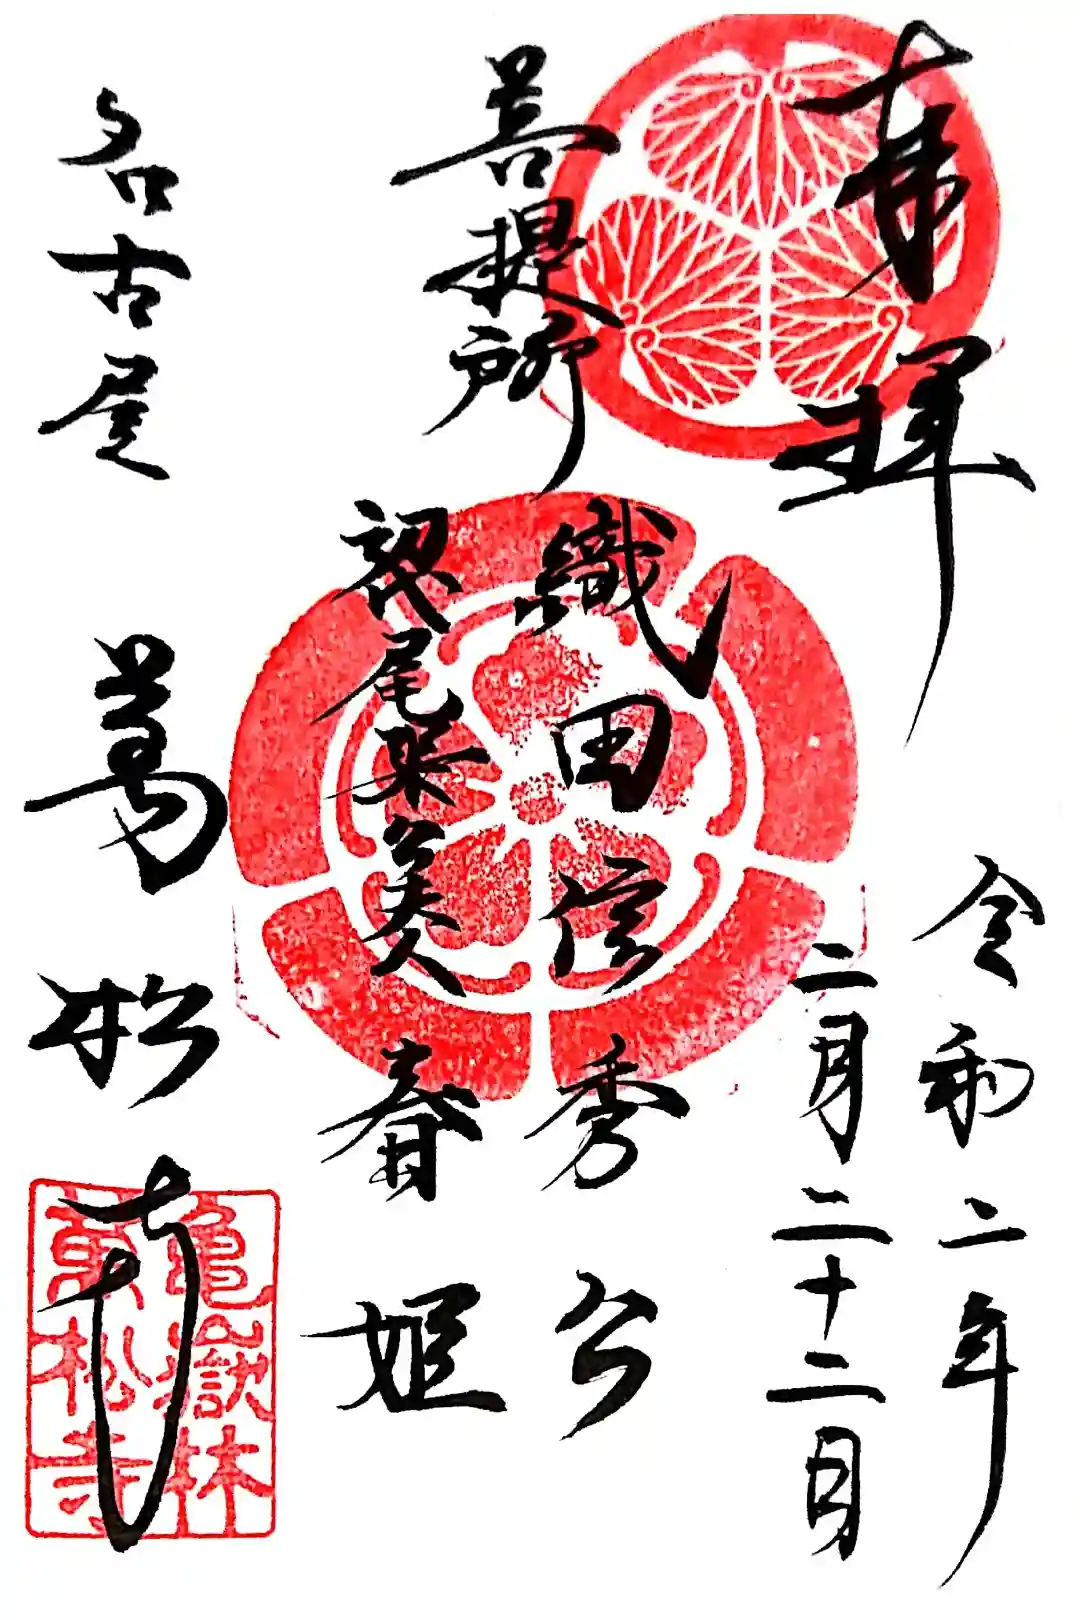 奉拝
令和二年
二月二十二日
菩提所
織田信秀公
初代尾張公夫人 春姫
名古屋
萬松寺
亀嶽林
萬松寺